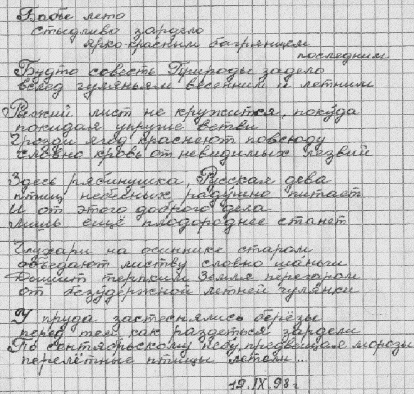 Бабье лето
стыдливо зардело
ярко-красным багрянцем
последним
Будто совесть Природы задело
вслед гуляньям весенним и летним
Рыжий лист не кружится, покуда
покидая упругие ветви
Грозди ягод краснеют повсюду
словно кровь от невидимых лезвий
Здесь рябинушка, Русская дева
птиц небесных радушно питает
И от этого доброго дела
лишь ещё плодороднее станет
Глухари на осиннике старом
объедают листву словно шаньги
Дышит терпким Земля перегаром
от безудержной летней гулянки
У пруда застеснялись берёзы
перед тем как раздеться, зардели
По сентябрьскому небу, предвещая морозы
перелётные птицы летели...
19.IX.98 г.